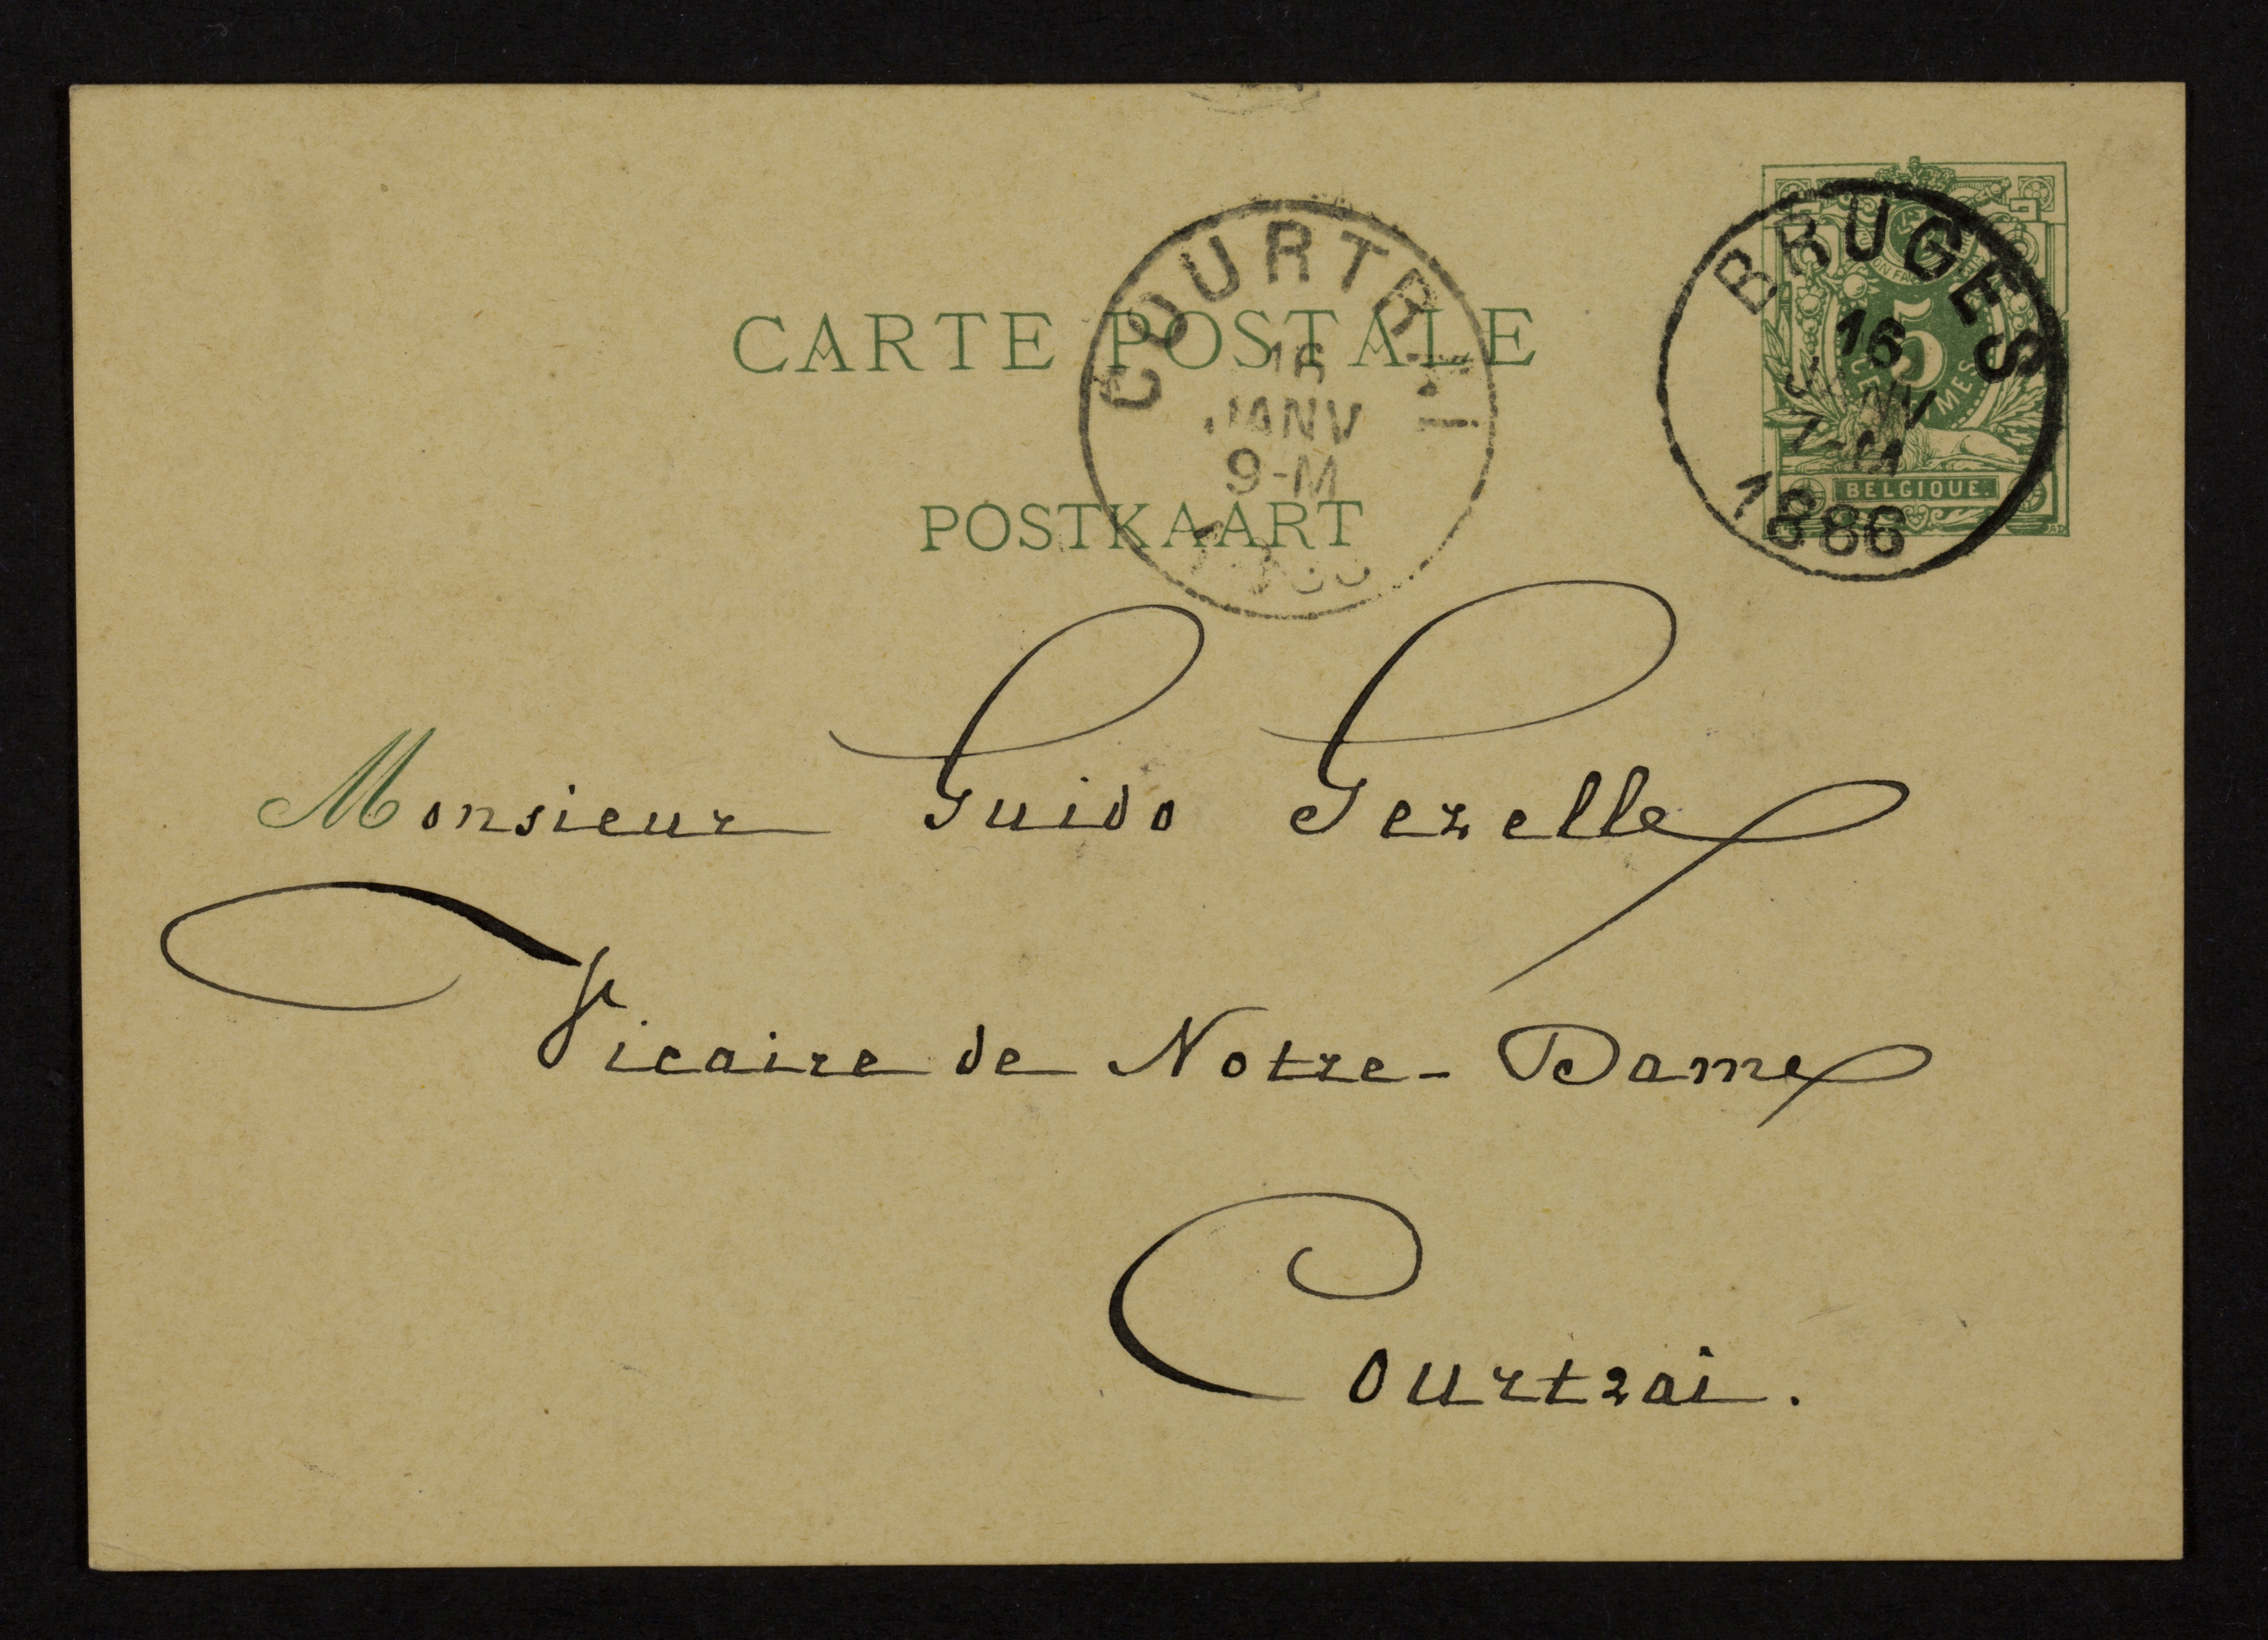 CARTE POSTALE
POSTKAART
COURTRAI
16
JANV
9-M
BRUGES
16
JANV
7-M
1886
5
CENTIMES
BELGIQUE.
Monsieur Guido Gezelle
Vicaire de Notre-Dame
Courtrai.